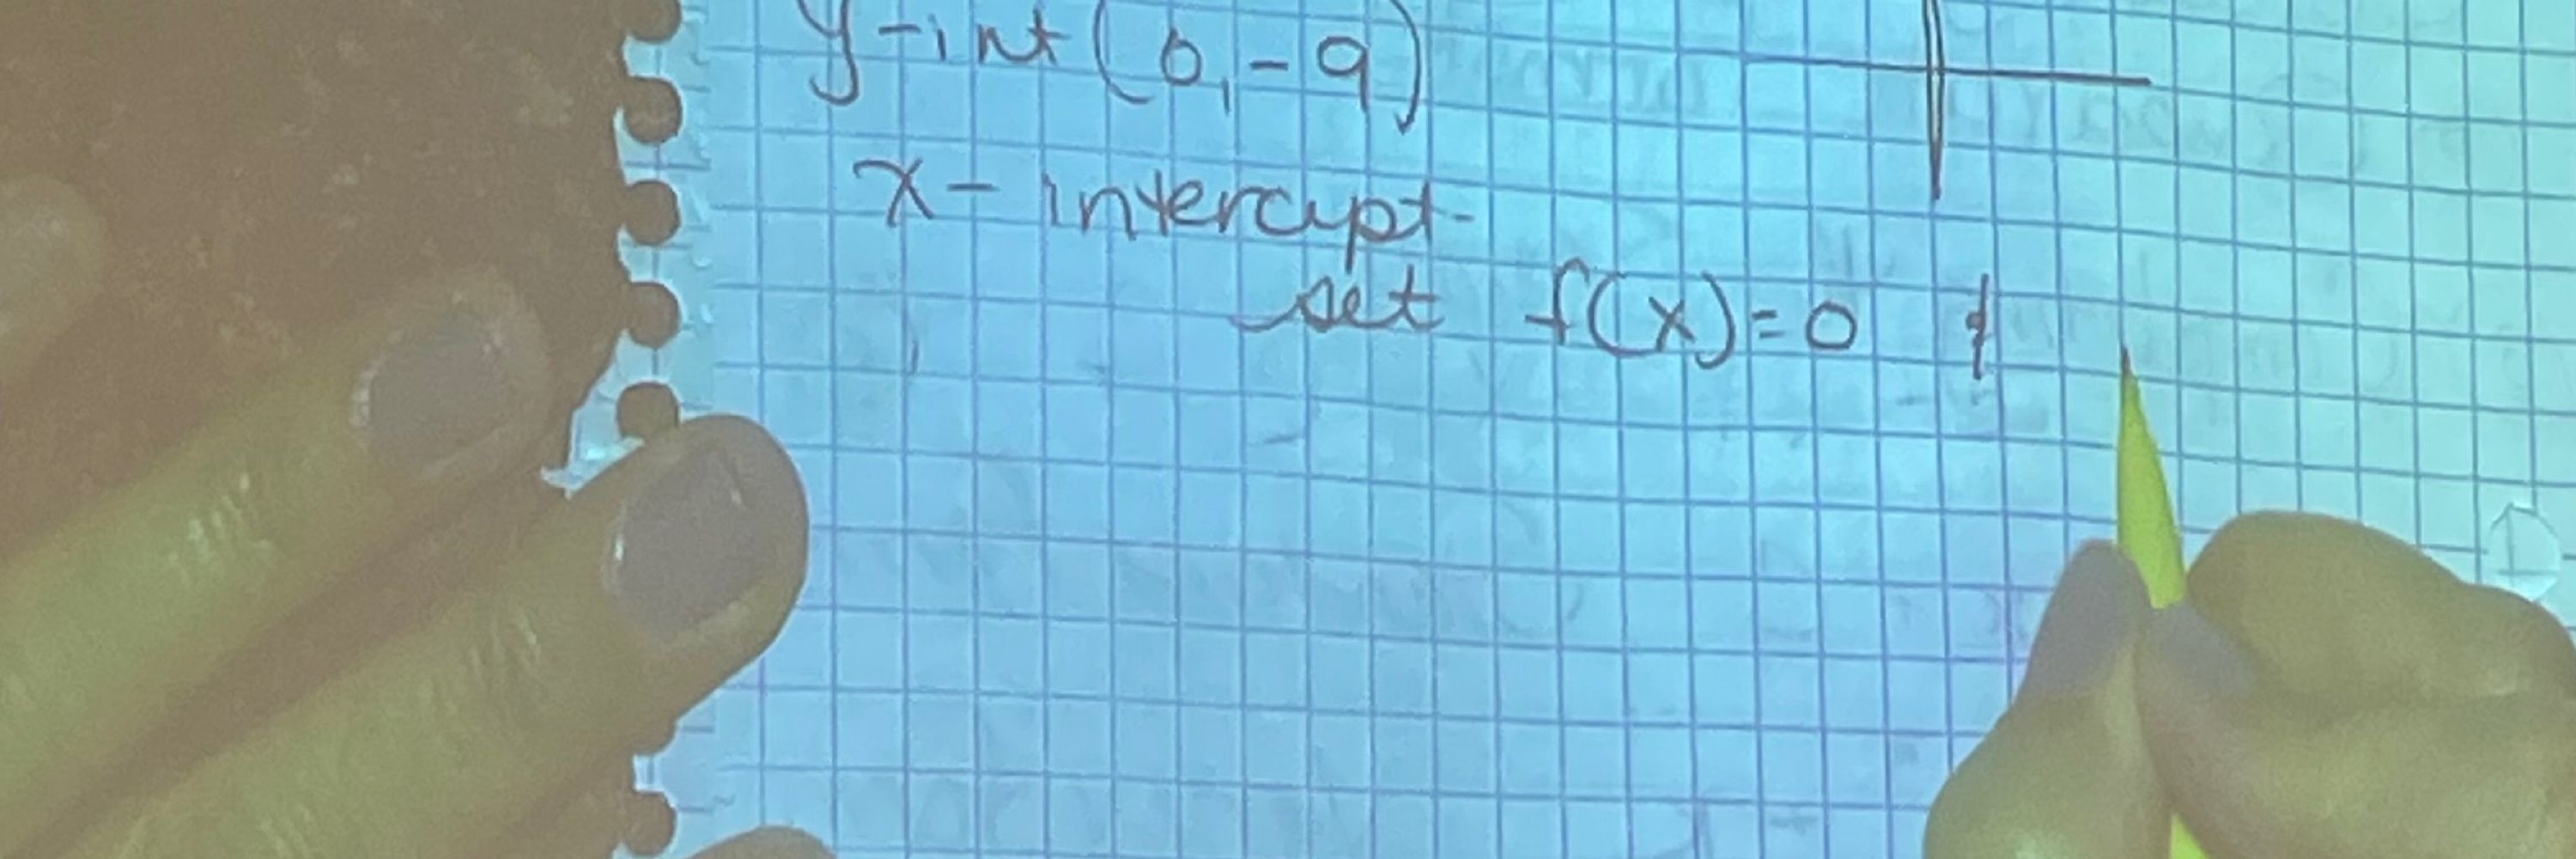 y-int (0,-9)
x- intercept
set f(x)=0 &